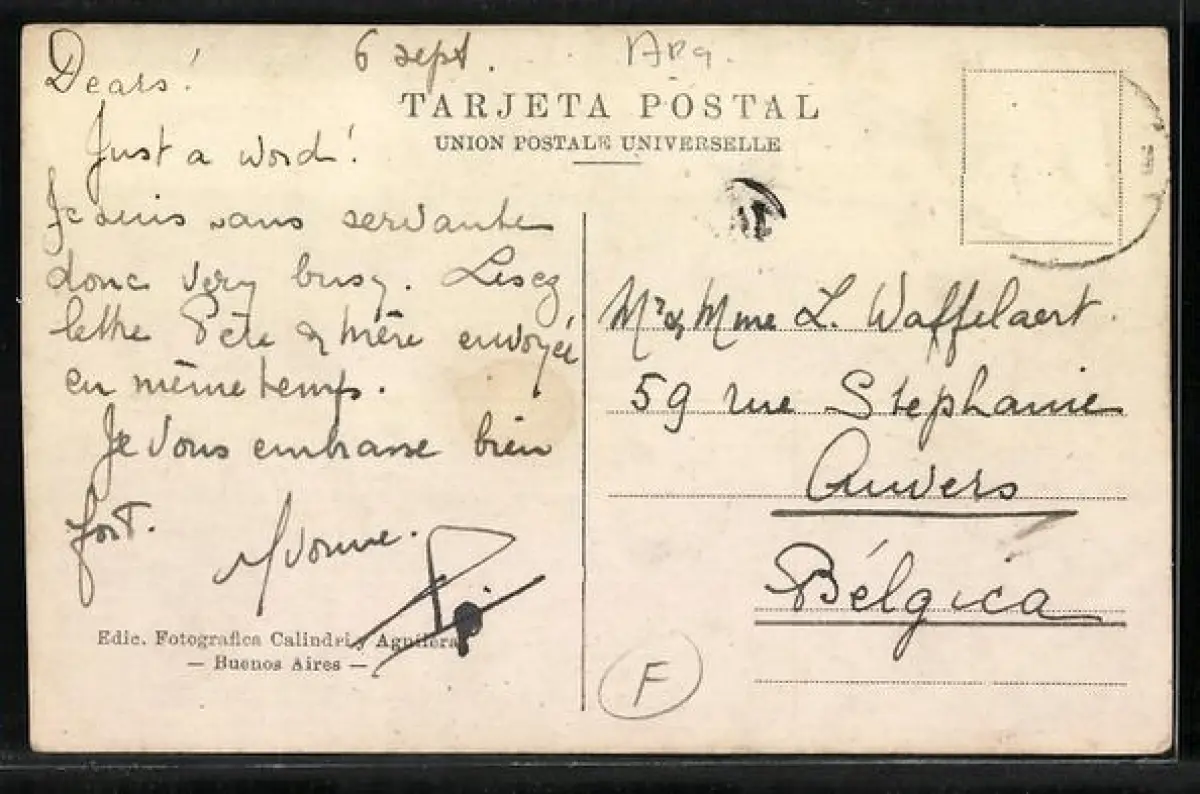 6 sept. Arg.
TARJETA POSTAL
UNION POSTALE UNIVERSELLE
Dears!
Just a word!
Je suis sans servante
donc very busy. Lisez
lettre Père & mère envoyée
en même temps.
Je vous embrasse bien
fort.
Yvonne.
Edic. Fotografica Calindri y Aguilera
— Buenos Aires —
Mr & Mme L. Waffelaert.
59 rue Stephanie
Anvers
Bélgica
F